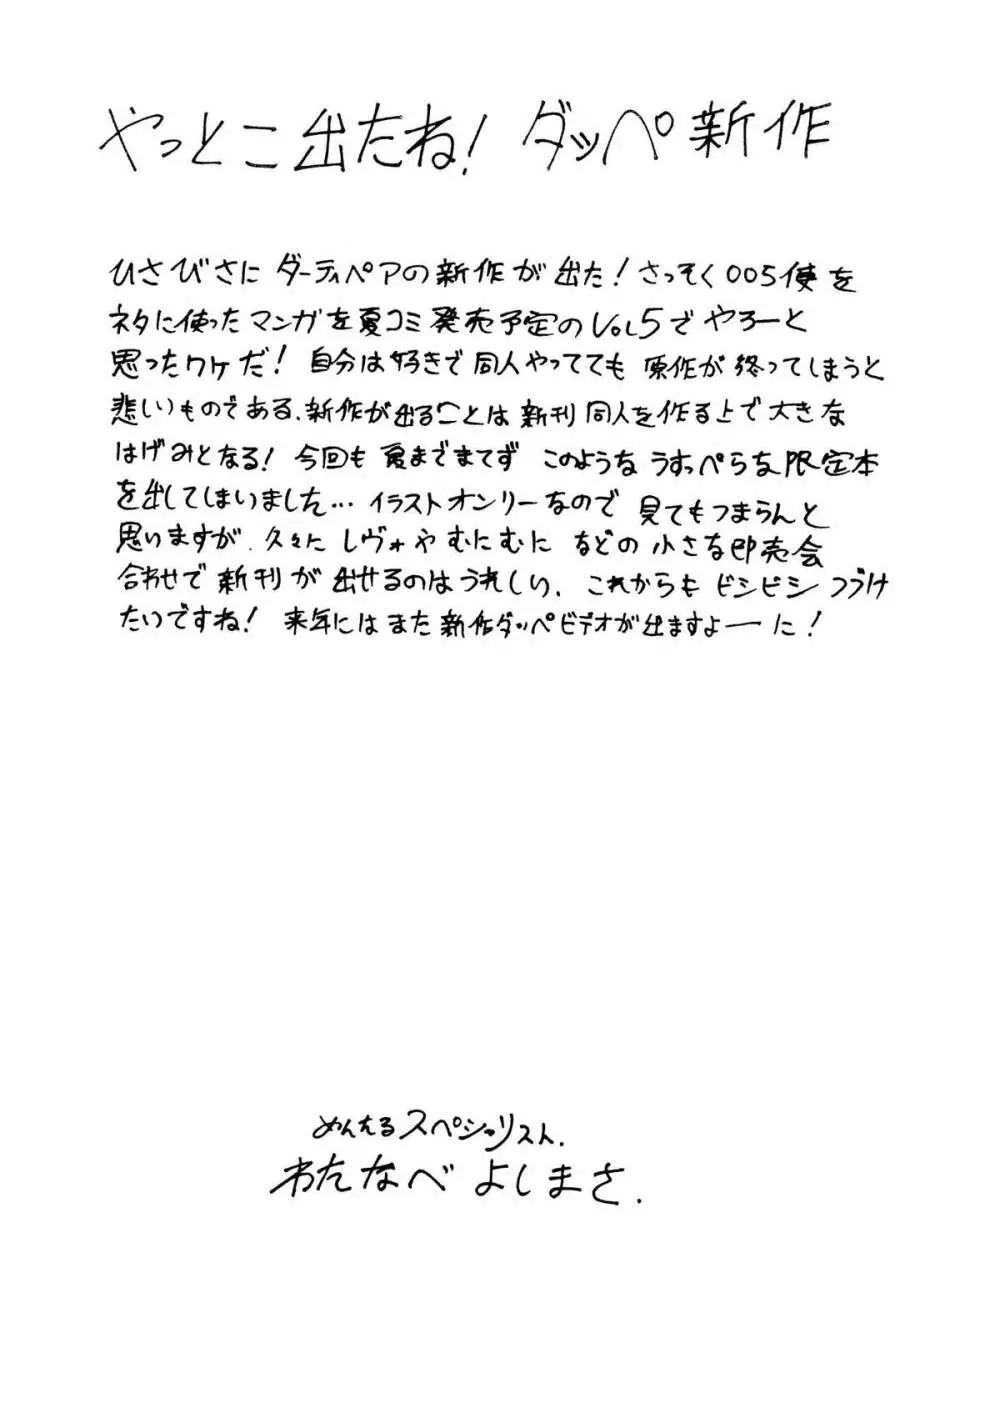 やっとこ出たね! ダッペ新作
ひさびさに ダーティペアの新作が出た!さっそく005便を
ネタに使ったマンガを夏コミ発売予定のVOL5でやろーと
思ったワケだ! 自分は好きで同人やってても 原作が終ってしまうと
悲しいものである、新作が出ることは新刊同人を作る上で大きな
はげみとなる! 今回も夏までまてず このようなうすっぺらな限定本
を出してしまいました… イラストオンリーなので 見てもつまらんと
思いますが、久々に レヴォや むにむに などの小さな即売会
合わせで新刊が出せるのはうれしい、これからも ビシビシつづけ
たいですね! 来年にはまた新作ダッペビデオが出ますよーーに!
めんえるスペシャリスト.
わたなべ よしまさ.